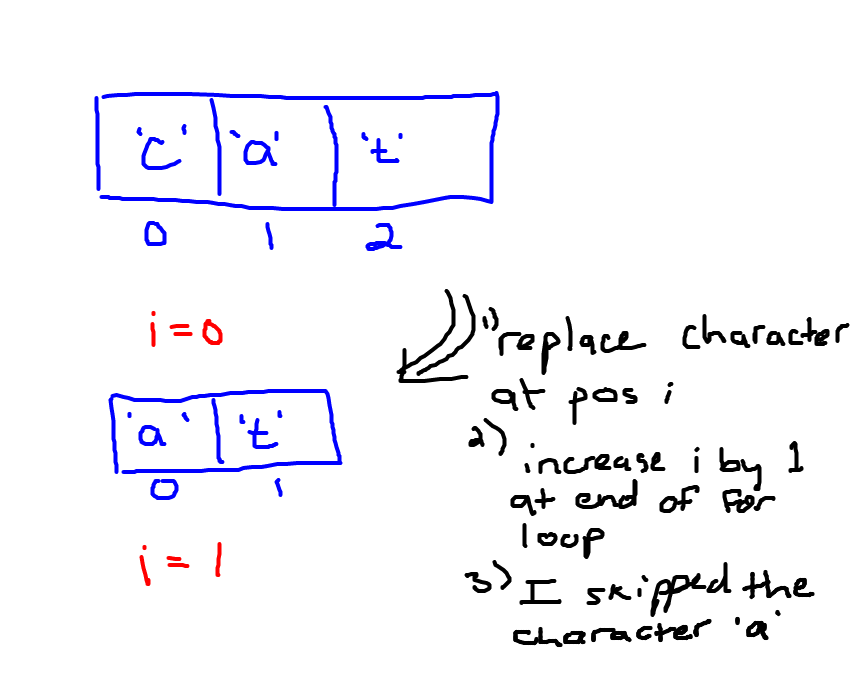 'c' 'a' 't'
0 1 2
i = 0
1) replace character
at pos i
'a' 't'
0 1
2) increase i by 1
at end of for
loop
i = 1
3) I skipped the
character 'a'